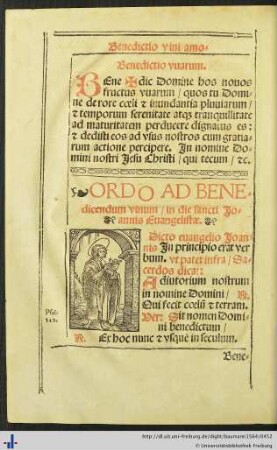 Benedictio vini amo-
Benedictio vuarum.
BEne ✠ dic Domine hos nouos
fructus vuarum / quos tu Domi-
ne de rore cœli & inundantia pluuiarum /
& temporum serenitate atq; tranquillitate
ad maturitatem perducere dignatus es:
& dedisti eos ad vsus nostros cum gratia-
rum actione percipere. In nomine Do-
mini nostri Jesu Christi / qui tecum / &c.
ORDO AD BENE-
dicendum vinum / in die sancti Jo-
annis Euangelistæ.
Dicto euangelio Joan-
nis In principio erat ver
bum. vt patet infra / Sa-
cerdos dicat:
Adiutorium nostrum
in nomine Domini / R.
Qui fecit cœlū & terram.
Ver: Sit nomen Domi-
ni benedictum /
Psal.
R. Ex hoc nunc & vsque in seculum.
Bene-
http://dl.ub.uni-freiburg.de/diglit/baumann1564/0452
© Universitätsbibliothek Freiburg